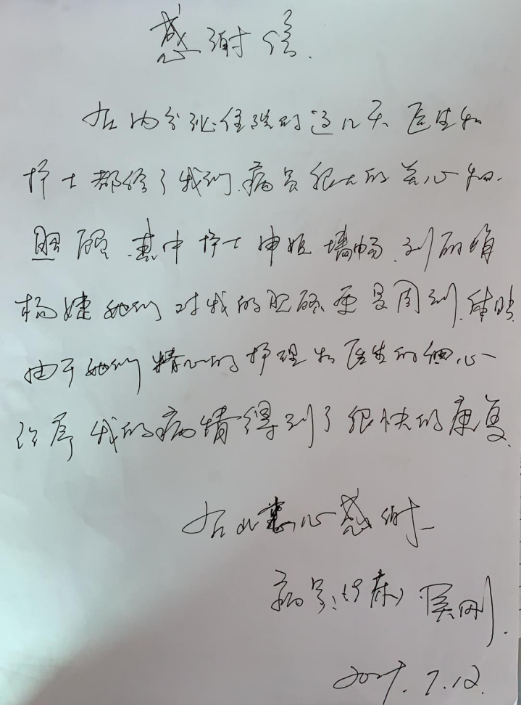 感谢信
在内分泌住院的这几天 医生和
护士都给了我们病员很大的关心和
照顾 其中护士申姐 畅 刘丽娟
杨婕她们对我的照顾更是周到 体贴
由于她们精心的护理和医生的细心
治疗 我的病情得到了很快的康复
在此衷心感谢
病员 (19床) 吴刚
7.12